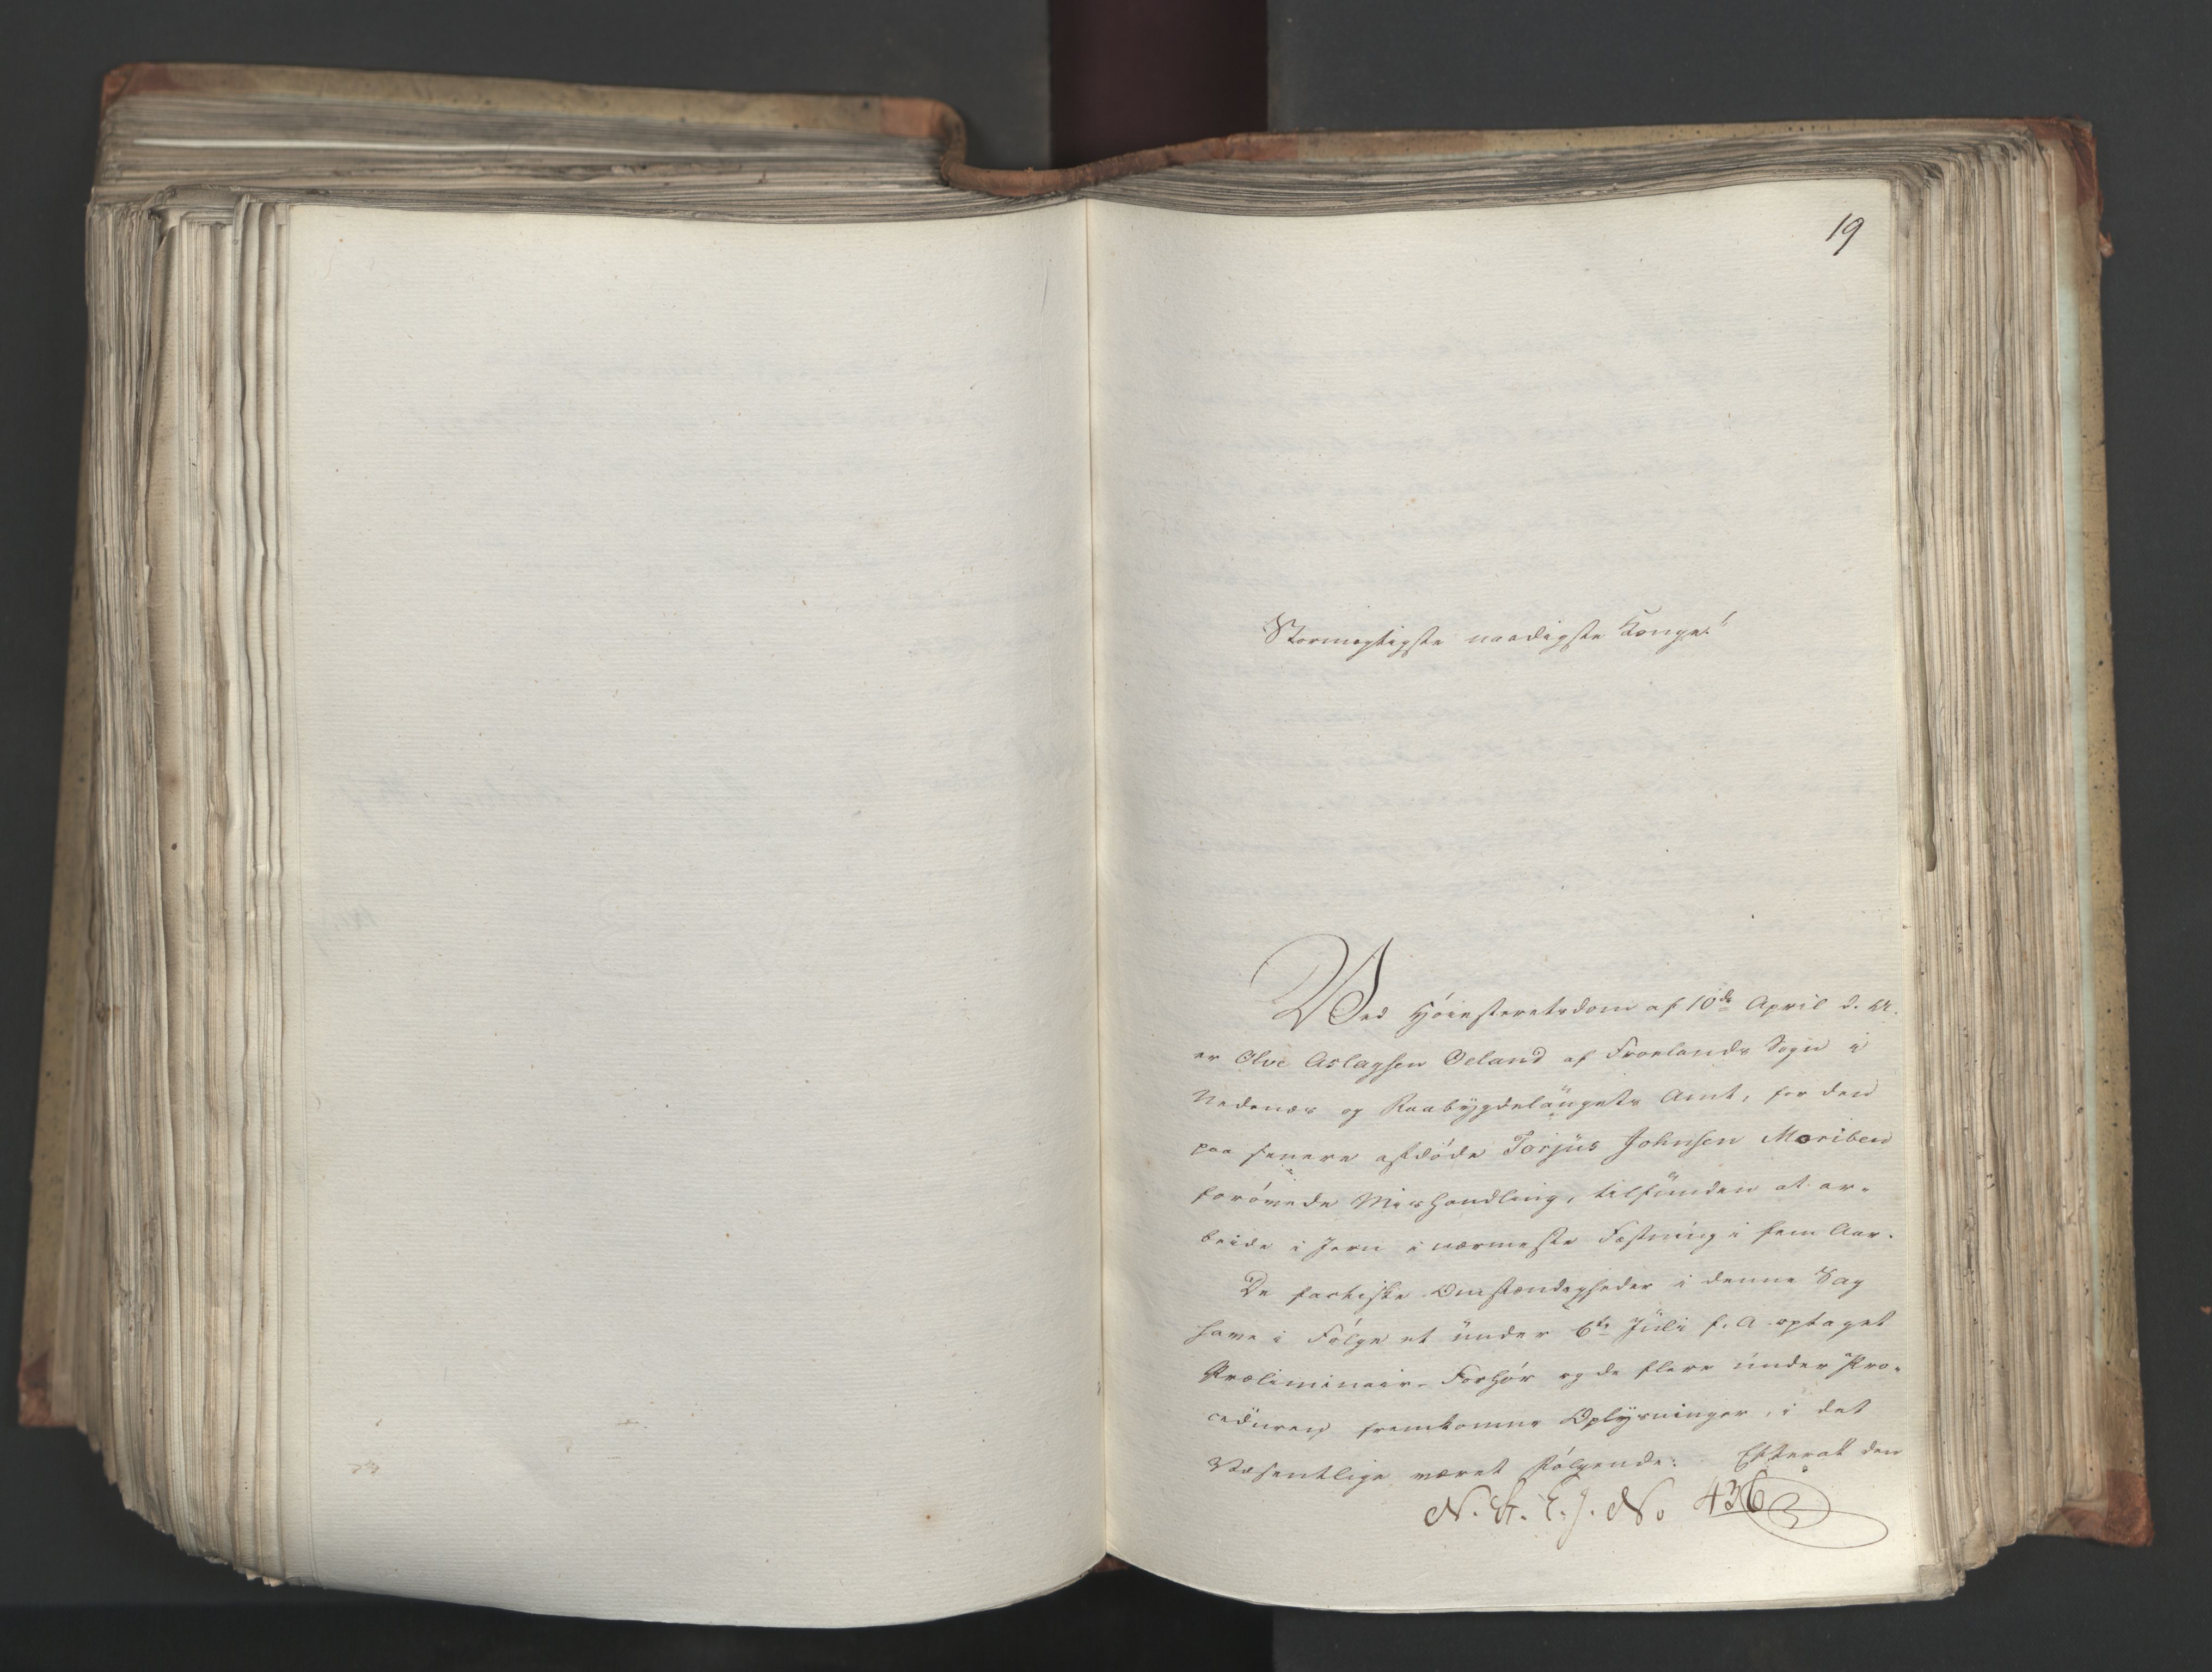 19
Stormægtigste naadigste Konge!
Ved Høiesteretsdom af 10de April d. A.
er Olve Aslagsen Oeland af Froelands Sogn i
Nedenæs og Raabygdelaugets Amt, for den
paa senere afdøde Torjus Johnsen Moriben
forøvede Mishandling, tilfunden at ar-
beide i Jern i nærmeste Fæstning i fem Aar.
De factiske Omstændigheder i denne Sag
have i Følge et under 6te Juli f. A. optaget
Præliminair-Forhør og de flere under Pro-
ceduren fremkomne Oplysninger, i det
Væsentlige været følgende: Efterat den
N. St. E. J. No 436